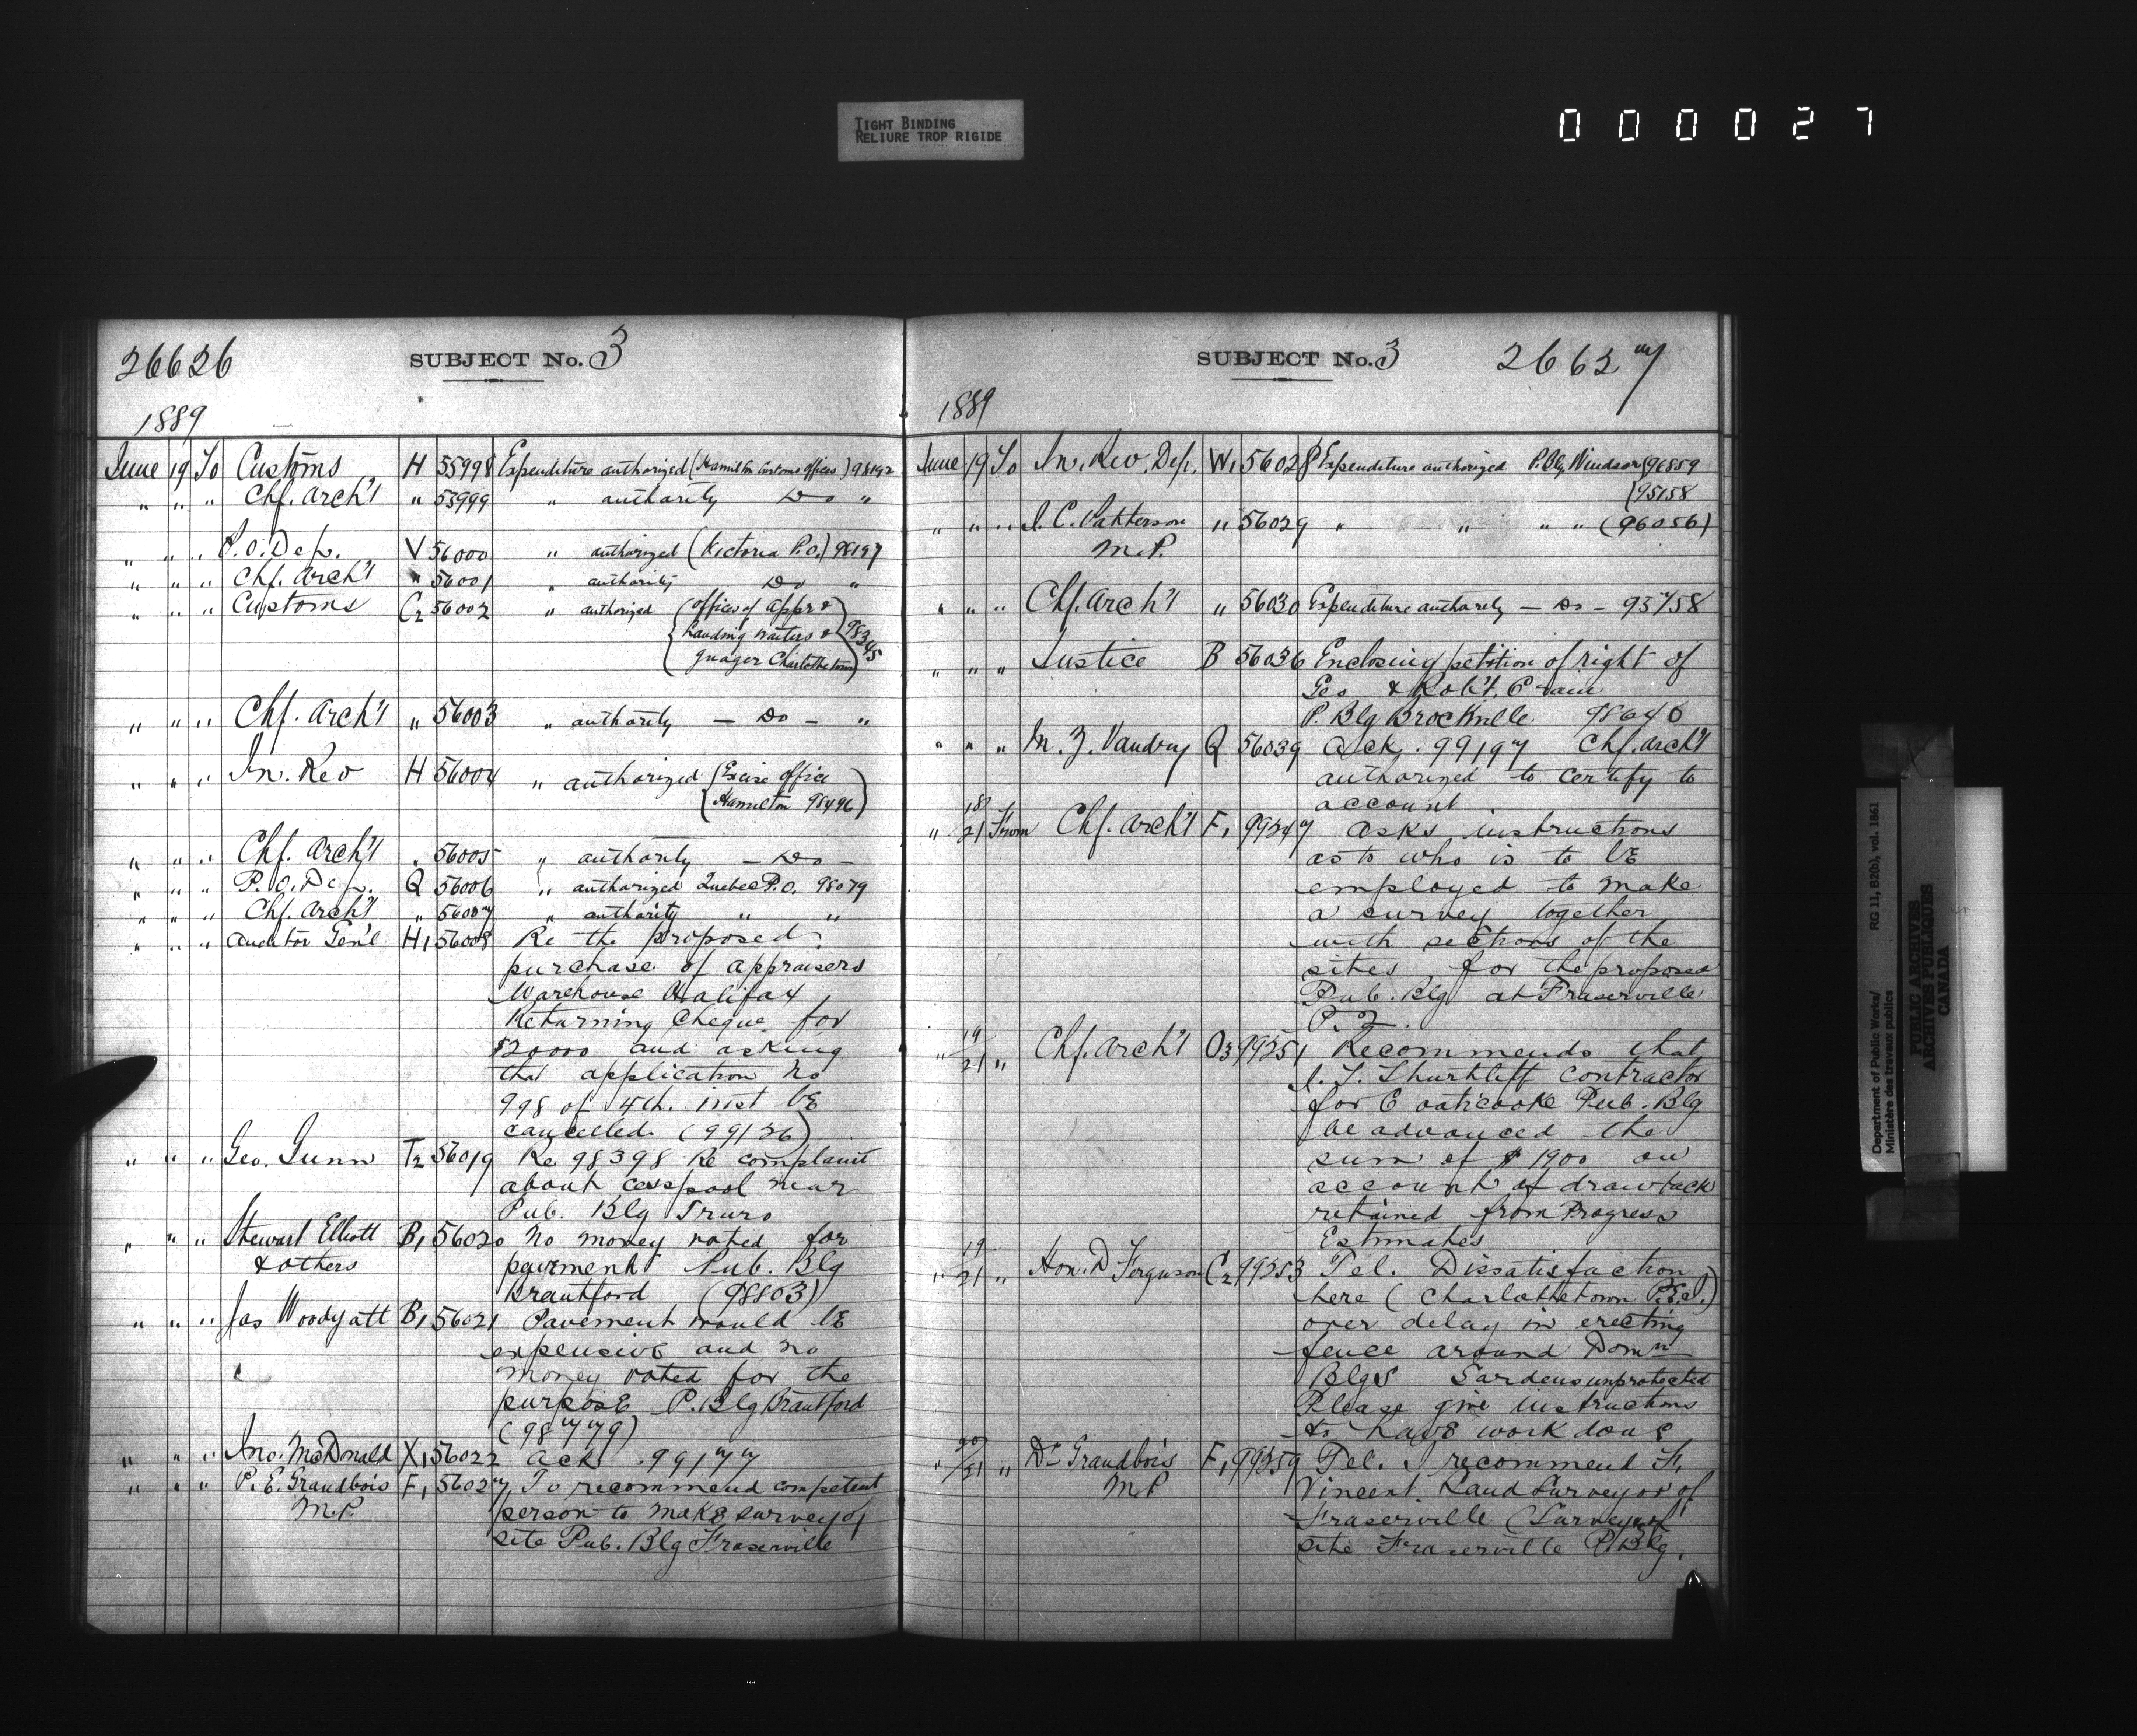 TIGHT BINDING
RELIURE TROP RIGIDE
000027
26626 SUBJECT No. 3
1889
June 19 To Customs H 55998 Expenditure authorized (Hamilton Customs offices) 98192
" " " Chf. Arch't " 55999 " authority Do "
" " " P.O. Dep. V 56000 " authorized (Victoria P.O.) 98197
" " " Chf. Arch't " 56001 " authority Do "
" " " Customs C2 56002 " authorized (offices of Appr &
Landing Waiters & 98345
guager Charlottetown)
" " " Chf. Arch't " 56003 " authority — Do — "
" " " In. Rev H 56004 " authorized (Excise office
Hamilton 98496)
" " " Chf. Arch't " 56005 " authority — Do —
" " " P.O. Dep. Q 56006 " authorized Quebec P.O. 98079
" " " Chf. Arch't " 56007 " authority " "
" " " Auditor Gen'l H1 56008 Re the proposed
purchase of appraisers
Warehouse Halifax
Returning Cheque for
$20000 and asking
that application No
998 of 4th. inst be
cancelled. (99126)
" " " Geo. Gunn T2 56019 Re 98398 Re complaint
about cesspool near
Pub. Blg Truro
" " " Stewart Elliott B1 56020 No money voted for
& others pavement Pub. Blg
Brantford (98803)
" " " Jas Woodyatt B1 56021 Pavement would be
expensive and no
money voted for the
purpose P. Blg Brantford
(98779)
" " " Jno. McDonald X1 56022 Ack. 99177
" " " P. E. Grandbois F1 56027 To recommend competent
M.P. person to make survey of
site Pub. Blg Fraserville
SUBJECT No. 3 26627
1889
June 19 To In. Rev. Dep. W1 56028 Expenditure authorized P. Blg Windsor (96859
(95158
" " " J. C. Patterson " 56029 " " " " (96056)
M.P.
" " " Chf. Arch't " 56030 Expenditure authority — Do — 93758
" " " Justice B 56036 Enclosing petition of right of
Geo & Rob't. Crain
P. Blg Brockville 98640
" " " M. Z. Vandry Q 56039 Ack. 99197 Chf. Arch't
authorized to certify to
account
" 18/21 From Chf. Arch't F1 99247 Asks instructions
as to who is to be
employed to make
a survey together
with sections of the
sites for the proposed
Pub. Blg at Fraserville
P.Q.
" 19/21 " Chf. Arch't O3 99251 Recommends that
J. T. Shurtliff contractor
for Coaticooke Pub. Blg
be advanced the
sum of $1900 on
account of drawback
retained from Progress
Estimates
" 19/21 " Hon. D Ferguson C2 99253 Tel. Dissatisfaction
here (Charlottetown P.E.I.)
over delay in erecting
fence around Domn
Blgs Gardens unprotected
Please give instructions
to have work done
" 20/21 " Dr Grandbois F1 99259 Tel. I recommend F.
M.P. Vincent Land Surveyor of
Fraserville (Survey of
site Fraserville P. Blg.
Department of Public Works/ RG 11, B2(b), vol. 1861
Ministère des travaux publics
PUBLIC ARCHIVES
ARCHIVES PUBLIQUES
CANADA